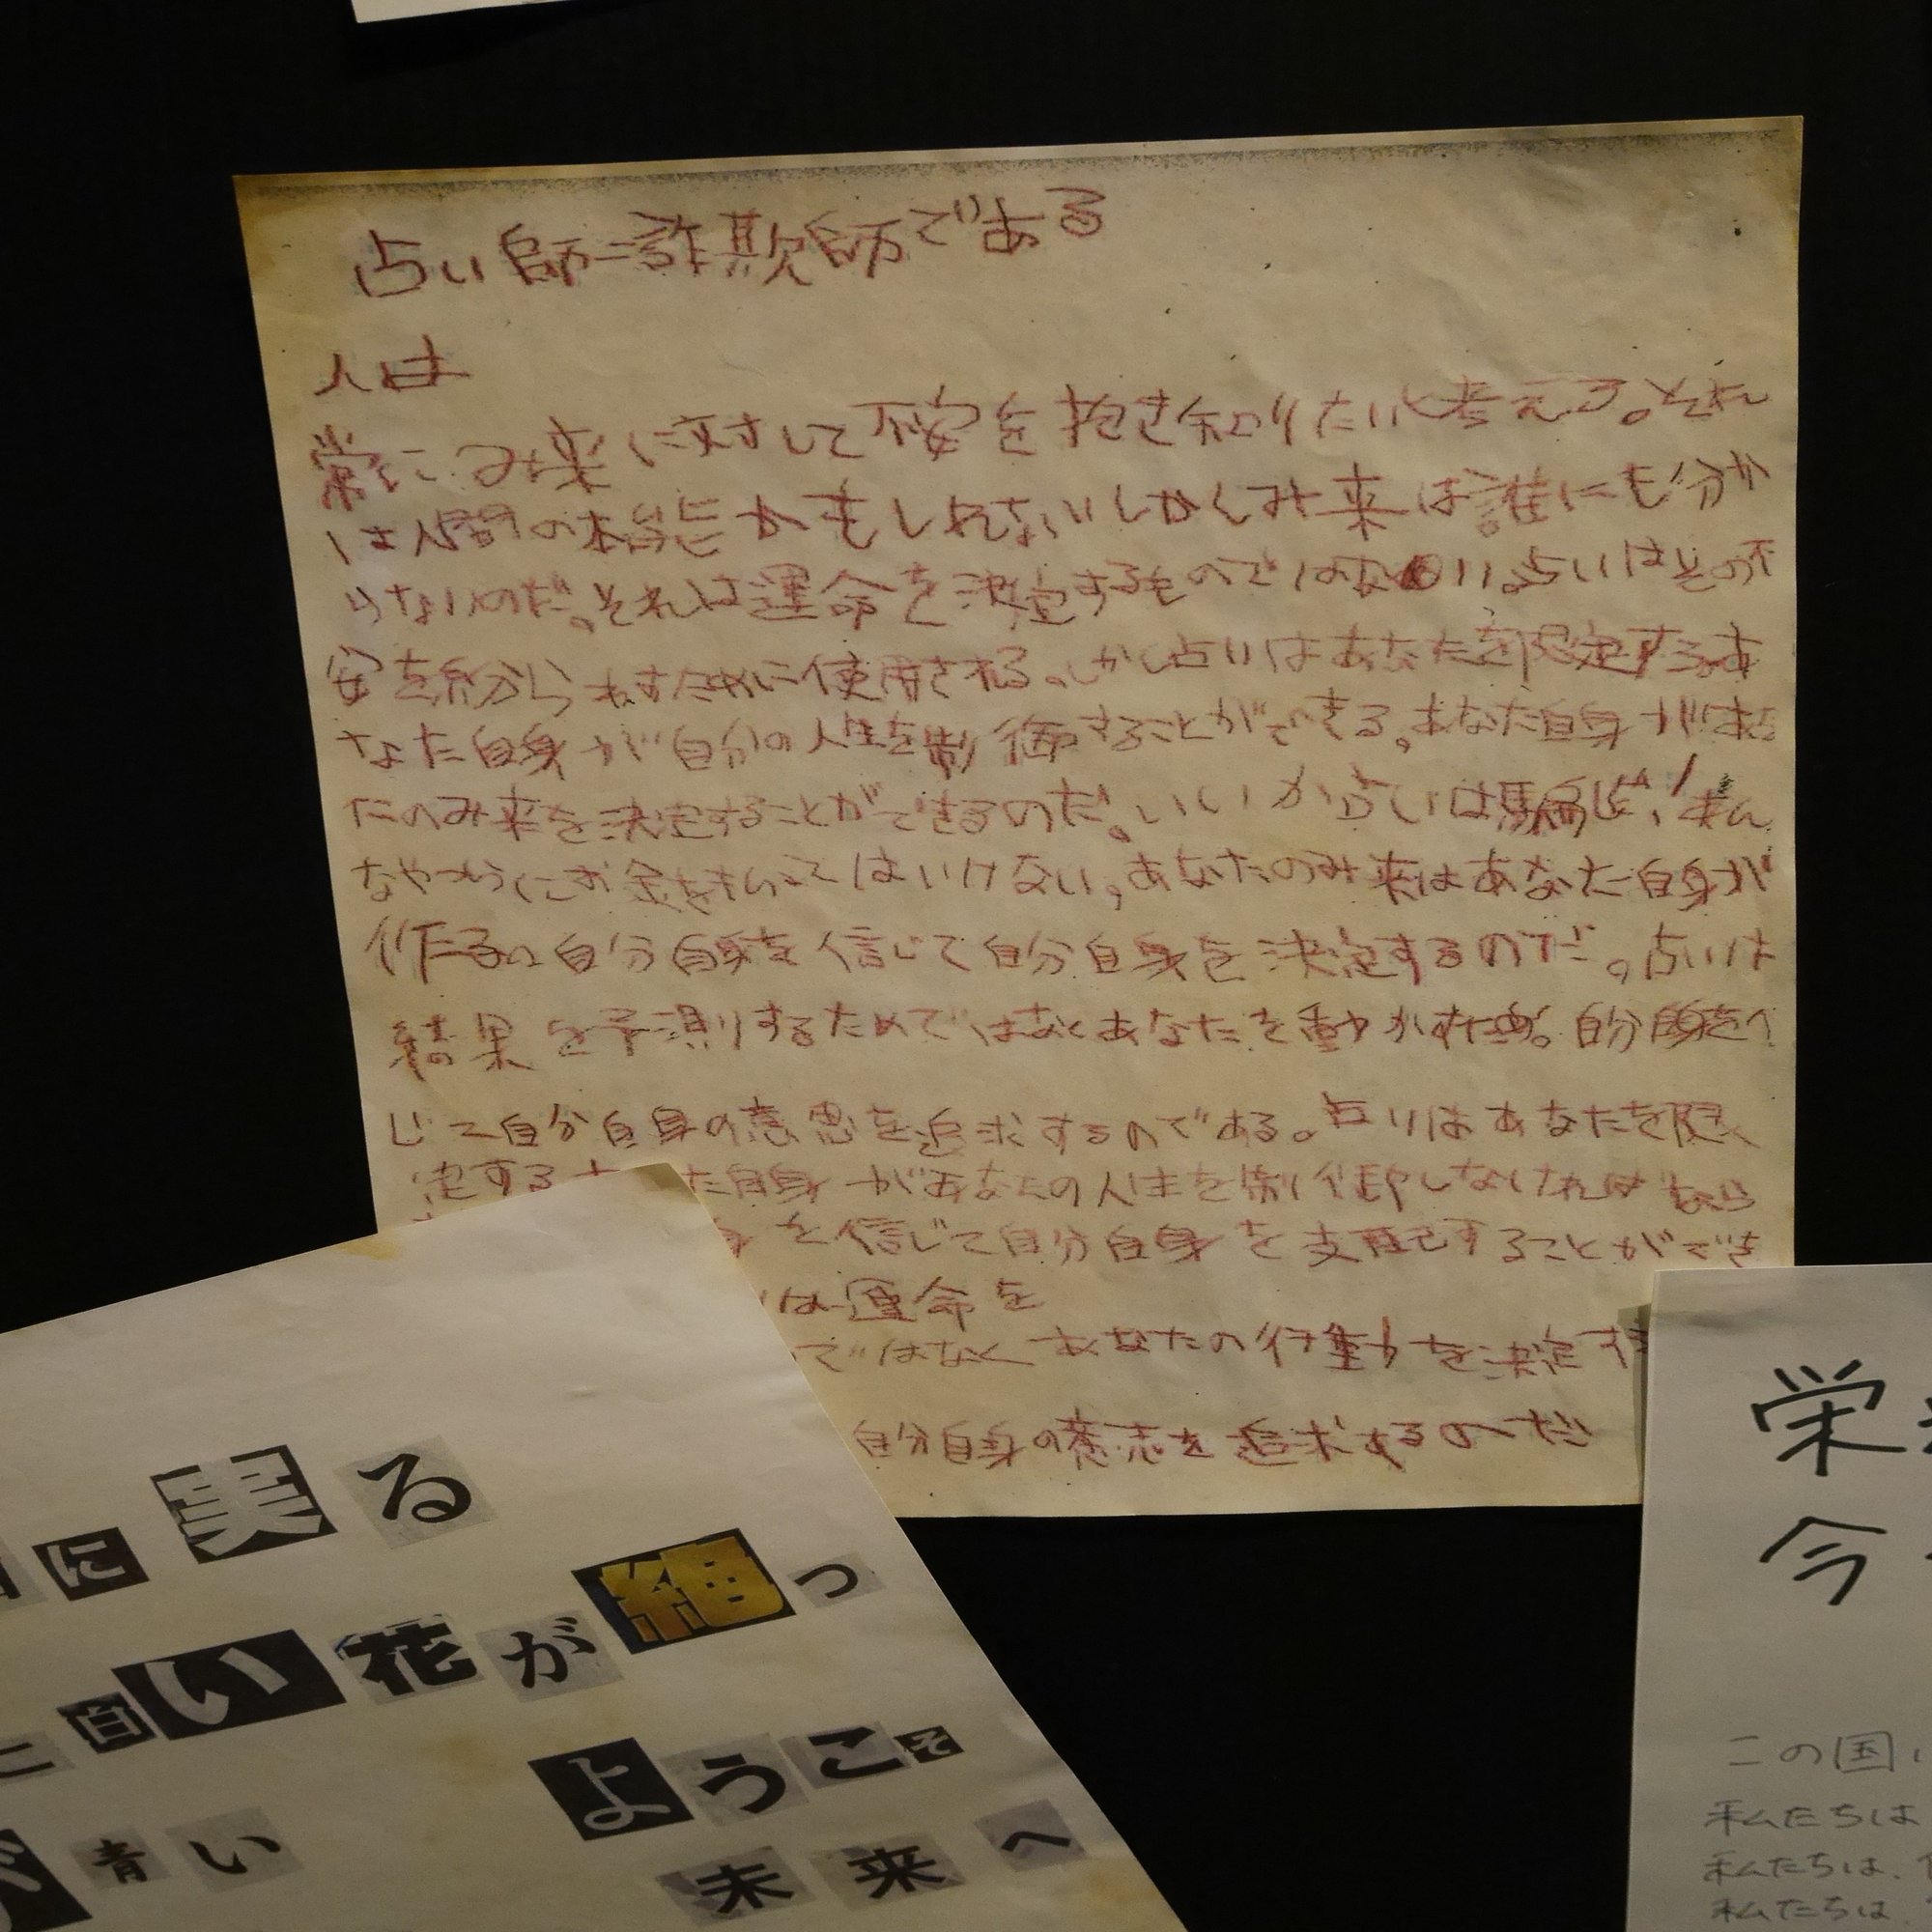 占い師=詐欺師である
人は
常にみ来に対して不安を抱き知りたいと考える。それ
は人間の本能かもしれないしかしみ来は誰にも分か
らないのだ。それは運命を決定するものではない。占いはその不
安を紛らわすために使用される。しかし占いはあなたを限定するあ
なた自身が自分の人生を制御することができる。あなた自身があな
たのみ来を決定することができるのだ。いいか占いは騙しだ!そん
なやつらにお金をはらってはいけない,あなたのみ来はあなた自身が
作る 自分自身を信じて自分自身を決定するのだ。占いは
結果を予測するためではなくあなたを動かすため。自分自身を
じて自分自身の意思を追求するのである。占いはあなたを限
定する た自身があなたの人生を制御しなければなら
を信じて自分自身を支配することができ
は運命を
ではなくあなたの行動を決定す
自分自身の意志を追求するのだ
に実る
白い花が絶つ
青い
ようこそ
未来へ
栄
今
この国
私たちは
私たちは、
私たちは